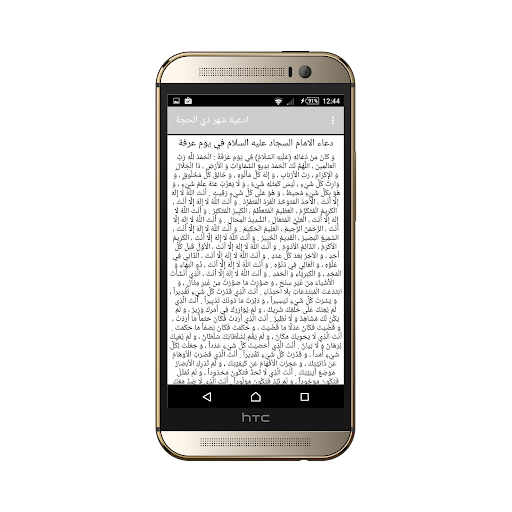 91%
12:44
ادعية شهر ذي الحجة
دعاء الامام السجاد عليه السلام في يوم عرفة
و كَانَ مِنْ دُعَائِهِ (عَلَيْهِ السَّلَامُ) فِي يَوْمِ عَرَفَةَ : الْحَمْدُ لِلَّهِ رَبِّ
الْعَالَمِينَ . اللَّهُمَّ لَكَ الْحَمْدُ بَدِيعَ السَّمَاوَاتِ وَ الْأَرْضِ ، ذَا الْجَلَالِ
وَ الْإِكْرَامِ ، رَبَّ الْأَرْبَابِ ، وَ إِلَهَ كُلِّ مَأْلُوهٍ ، وَ خَالِقَ كُلِّ مَخْلُوقٍ ، وَ
وَارِثَ كُلِّ شَيْءٍ ، لَيْسَ كَمِثْلِهِ شَيْءٌ ، وَ لَا يَعْزُبُ عَنْهُ عِلْمُ شَيْءٍ ، وَ
هُوَ بِكُلِّ شَيْءٍ مُحِيطٌ ، وَ هُوَ عَلَى كُلِّ شَيْءٍ رَقِيبٌ . أَنْتَ اللَّهُ لَا إِلَهَ
إِلَّا أَنْتَ ، الْأَحَدُ الْمُتَوَحِّدُ الْفَرْدُ الْمُتَفَرِّدُ وَ أَنْتَ اللَّهُ لَا إِلَهَ إِلَّا أَنْتَ ،
الْكَرِيمُ الْمُتَكَرِّمُ ، الْعَظِيمُ الْمُتَعَظِّمُ ، الْكَبِيرُ الْمُتَكَبِّرُ . وَ أَنْتَ اللَّهُ
لَا إِلَهَ إِلَّا أَنْتَ ، الْعَلِيُّ الْمُتَعَالِ ، الشَّدِيدُ الْمِحَالِ . وَ أَنْتَ اللَّهُ لَا إِلَهَ
إِلَّا أَنْتَ ، الرَّحْمَنُ الرَّحِيمُ ، الْعَلِيمُ الْحَكِيمُ . وَ أَنْتَ اللَّهُ لَا إِلَهَ إِلَّا أَنْتَ ،
السَّمِيعُ الْبَصِيرُ ، الْقَدِيمُ الْخَبِيرُ . وَ أَنْتَ اللَّهُ لَا إِلَهَ إِلَّا أَنْتَ ، الْكَرِيمُ
الْأَكْرَمُ ، الدَّائِمُ الْأَدْوَمُ . وَ أَنْتَ اللَّهُ لَا إِلَهَ إِلَّا أَنْتَ ، الْأَوَّلُ قَبْلَ كُلِّ
أَحَدٍ ، وَ الْآخِرُ بَعْدَ كُلِّ عَدَدٍ . وَ أَنْتَ اللَّهُ لَا إِلَهَ إِلَّا أَنْتَ ، الدَّانِي فِي
عُلُوِّهِ ، وَ الْعَالِي فِي دُنُوِّهِ . وَ أَنْتَ اللَّهُ لَا إِلَهَ إِلَّا أَنْتَ ، ذُو الْبَهَاءِ وَ
الْمَجْدِ ، وَ الْكِبْرِيَاءِ وَ الْحَمْدِ . وَ أَنْتَ اللَّهُ لَا إِلَهَ إِلَّا أَنْتَ ، الَّذِي أَنْشَأْتَ
الْأَشْيَاءَ مِنْ غَيْرِ سِنْخٍ ، وَ صَوَّرْتَ مَا صَوَّرْتَ مِنْ غَيْرِ مِثَالٍ ، وَ
ابْتَدَعْتَ الْمُبْتَدَعَاتِ بِلَا احْتِذَاءٍ . أَنْتَ الَّذِي قَدَّرْتَ كُلَّ شَيْءٍ تَقْدِيراً ،
وَ يَسَّرْتَ كُلَّ شَيْءٍ تَيْسِيراً ، وَ دَبَّرْتَ مَا دُونَكَ تَدْبِيراً . أَنْتَ الَّذِي
لَمْ يُعِنْكَ عَلَى خَلْقِكَ شَرِيكٌ ، وَ لَمْ يُوَازِرْكَ فِي أَمْرِكَ وَزِيرٌ ، وَ لَمْ
يَكُنْ لَكَ مُشَاهِدٌ وَ لَا نَظِيرٌ . أَنْتَ الَّذِي أَرَدْتَ فَكَانَ حَتْماً مَا أَرَدْتَ ،
وَ قَضَيْتَ فَكَانَ عَدْلًا مَا قَضَيْتَ ، وَ حَكَمْتَ فَكَانَ نِصْفاً مَا حَكَمْتَ .
أَنْتَ الَّذِي لَا يَحْوِيكَ مَكَانٌ ، وَ لَمْ يَقُمْ لِسُلْطَانِكَ سُلْطَانٌ ، وَ لَمْ يُعْيِكَ
بُرْهَانٌ وَ لَا بَيَانٌ . أَنْتَ الَّذِي أَحْصَيْتَ كُلَّ شَيْءٍ عَدَداً ، وَ جَعَلْتَ لِكُلِّ
شَيْءٍ أَمَداً ، وَ قَدَّرْتَ كُلَّ شَيْءٍ تَقْدِيراً . أَنْتَ الَّذِي قَصُرَتِ الْأَوْهَامُ
عَنْ ذَاتِيَّتِكَ ، وَ عَجَزَتِ الْأَفْهَامُ عَنْ كَيْفِيَّتِكَ ، وَ لَمْ تُدْرِكِ الْأَبْصَارُ
مَوْضِعَ أَيْنِيَّتِكَ . أَنْتَ الَّذِي لَا تُحَدُّ فَتَكُونَ مَحْدُوداً ، وَ لَمْ تُمَثَّلْ
فَتَكُونَ مَوْجُوداً ، وَ لَمْ تَلِدْ فَتَكُونَ مَوْلُوداً . أَنْتَ الَّذِي لَا ضِدَّ مَعَكَ
hTC